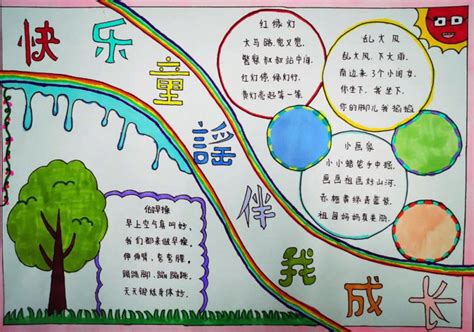 快乐童謡伴我成长
红绿灯
大马路,宽又宽,
警察叔叔站中间,
红灯停,绿灯行,
黄灯亮起等一等.
乱大风
乱大风、下大雨,
南边来了3个小闺女,
你坐下、我坐下,
你的脚儿我
小画家
小小蜡笔手中握,
画画祖国好山河.
赤橙黄绿青蓝紫,
祖国妈妈真美丽.
做早操
早上空气真叫好,
我们都来做早操.
伸伸臂,弯弯腰,
踢踢脚、蹦蹦跳,
天天锻炼身体好.